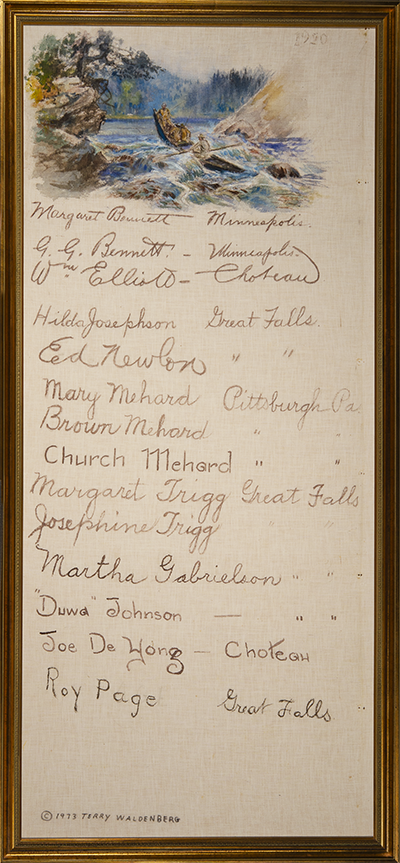 1920
Margaret Bennett Minneapolis.
G. G. Bennett. - Minneapolis.
Wm Elliott - Choteau
Hilda Josephson Great Falls.
Ed Newlon " "
Mary Mehard Pittsburgh Pa.
Brown Mehard " "
Church Mehard " "
Margaret Trigg Great Falls
Josephine Trigg " "
Martha Gabrielson " "
"Duwa" Johnson — " "
Joe De Yong — Choteau
Roy Page Great Falls
© 1973 TERRY WALDENBERG